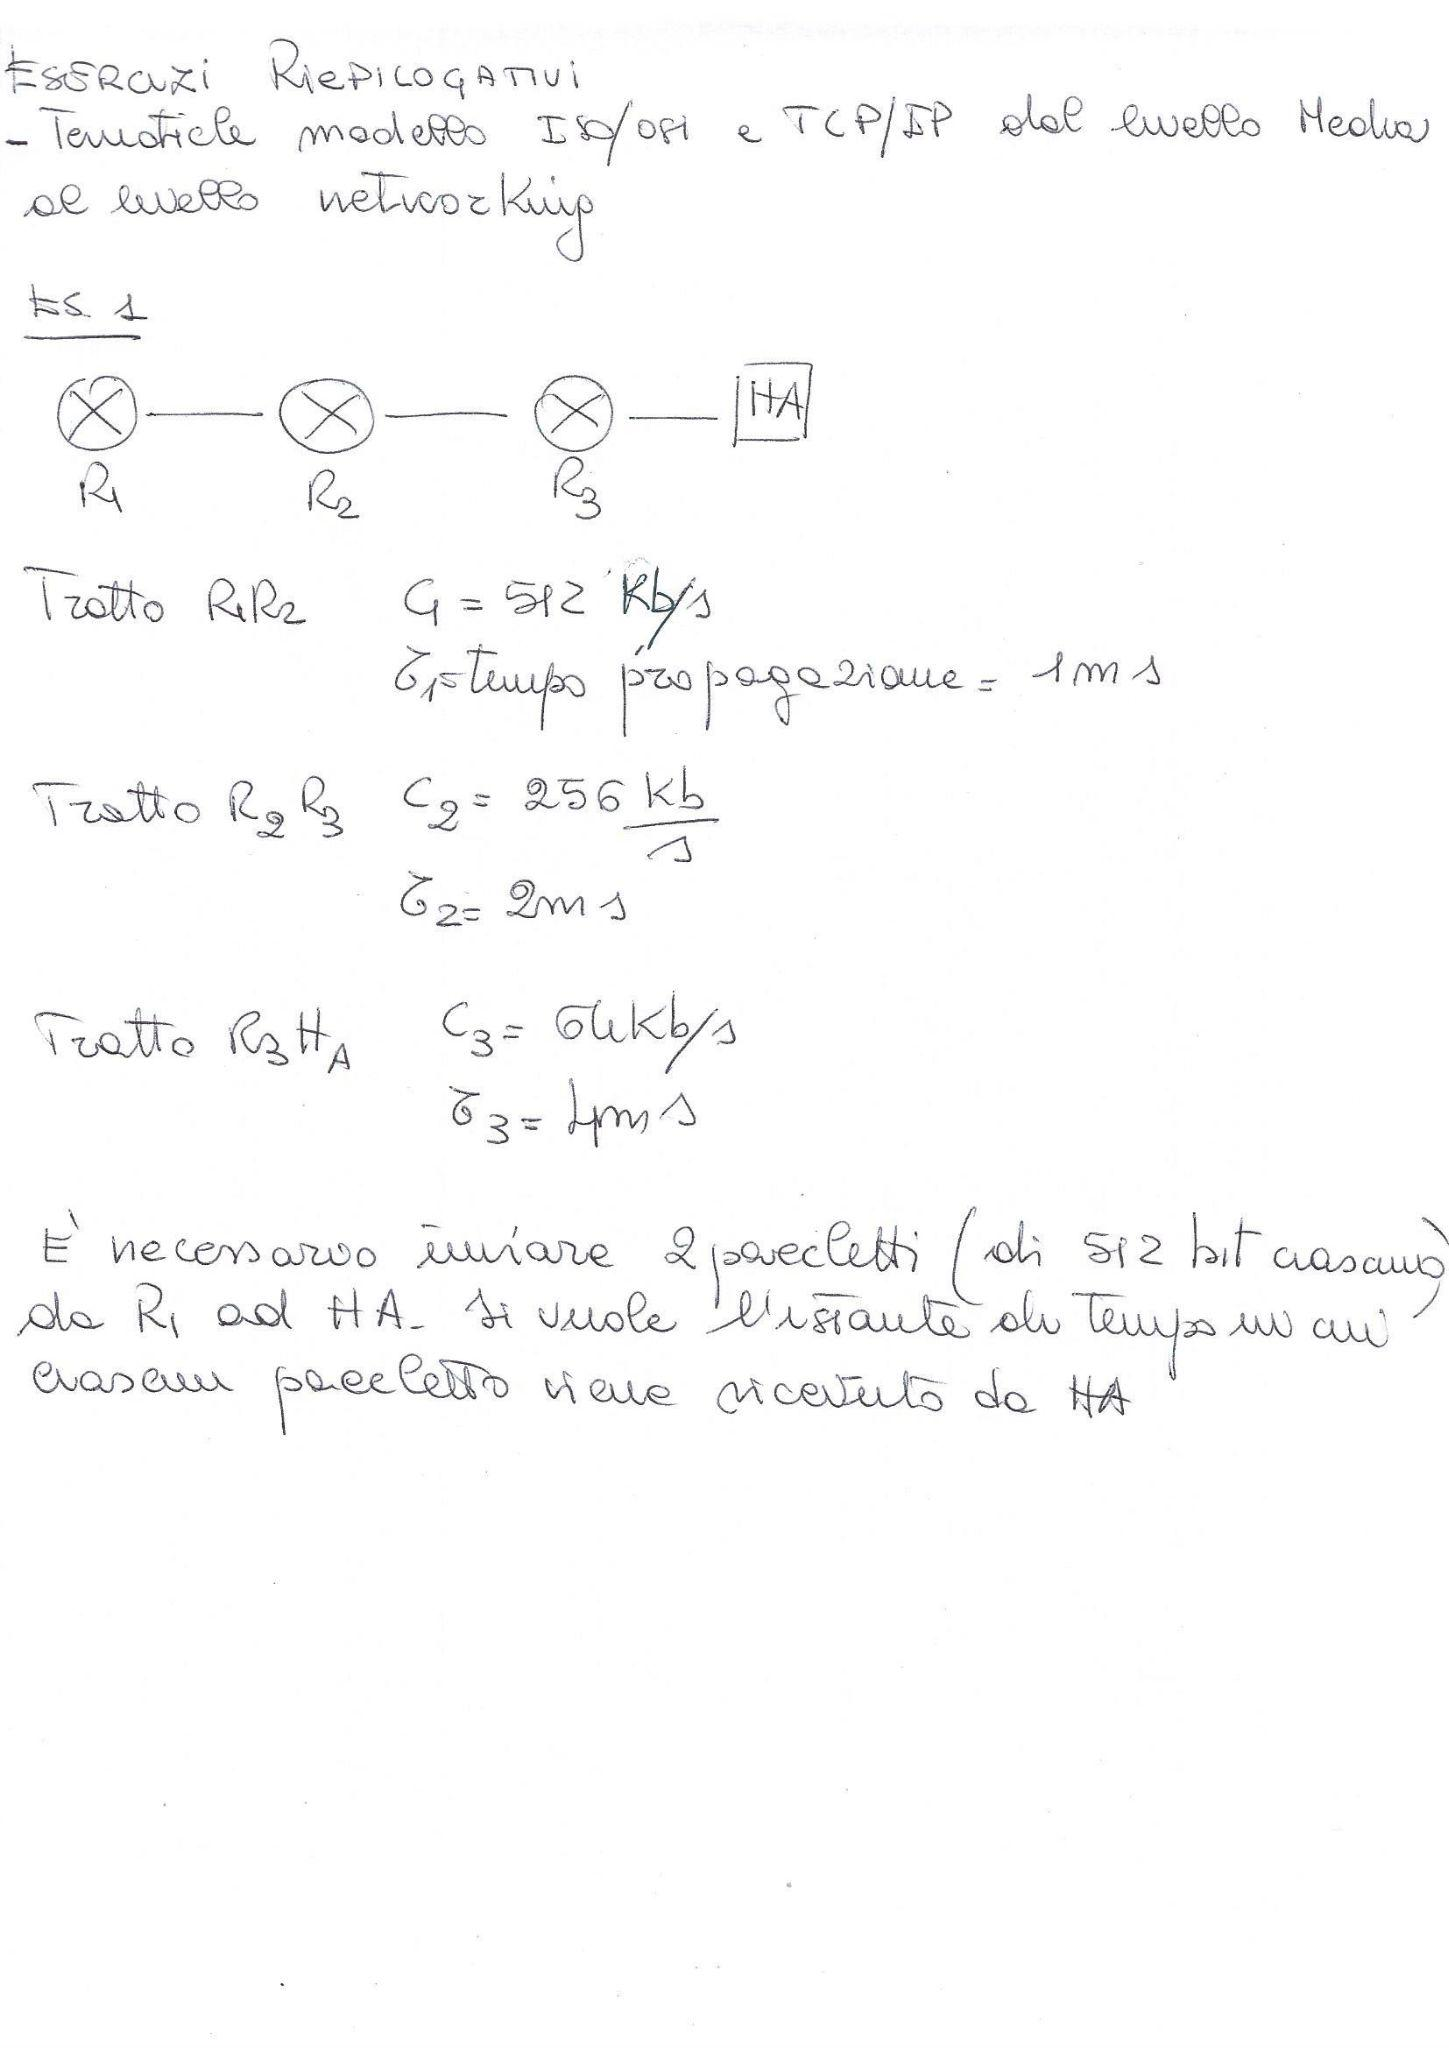 ESERCIZI RIEPILOGATIVI
- Tematiche modello ISO/OSI e TCP/IP dal livello Media
al livello networking
ES. 1
HA
R1 R2 R3
Tratto R1R2 C1 = 512 Kb/s
τ1= tempo propagazione = 1ms
Tratto R2R3 C2 = 256 kb/s
τ2= 2ms
Tratto R3HA C3= 64Kb/s
τ3= 4ms
E' necessario inviare 2 pacchetti (di 512 bit ciascuno)
da R1 ad HA. Si vuole l'istante di tempo in cui
ciascun pacchetto viene ricevuto da HA